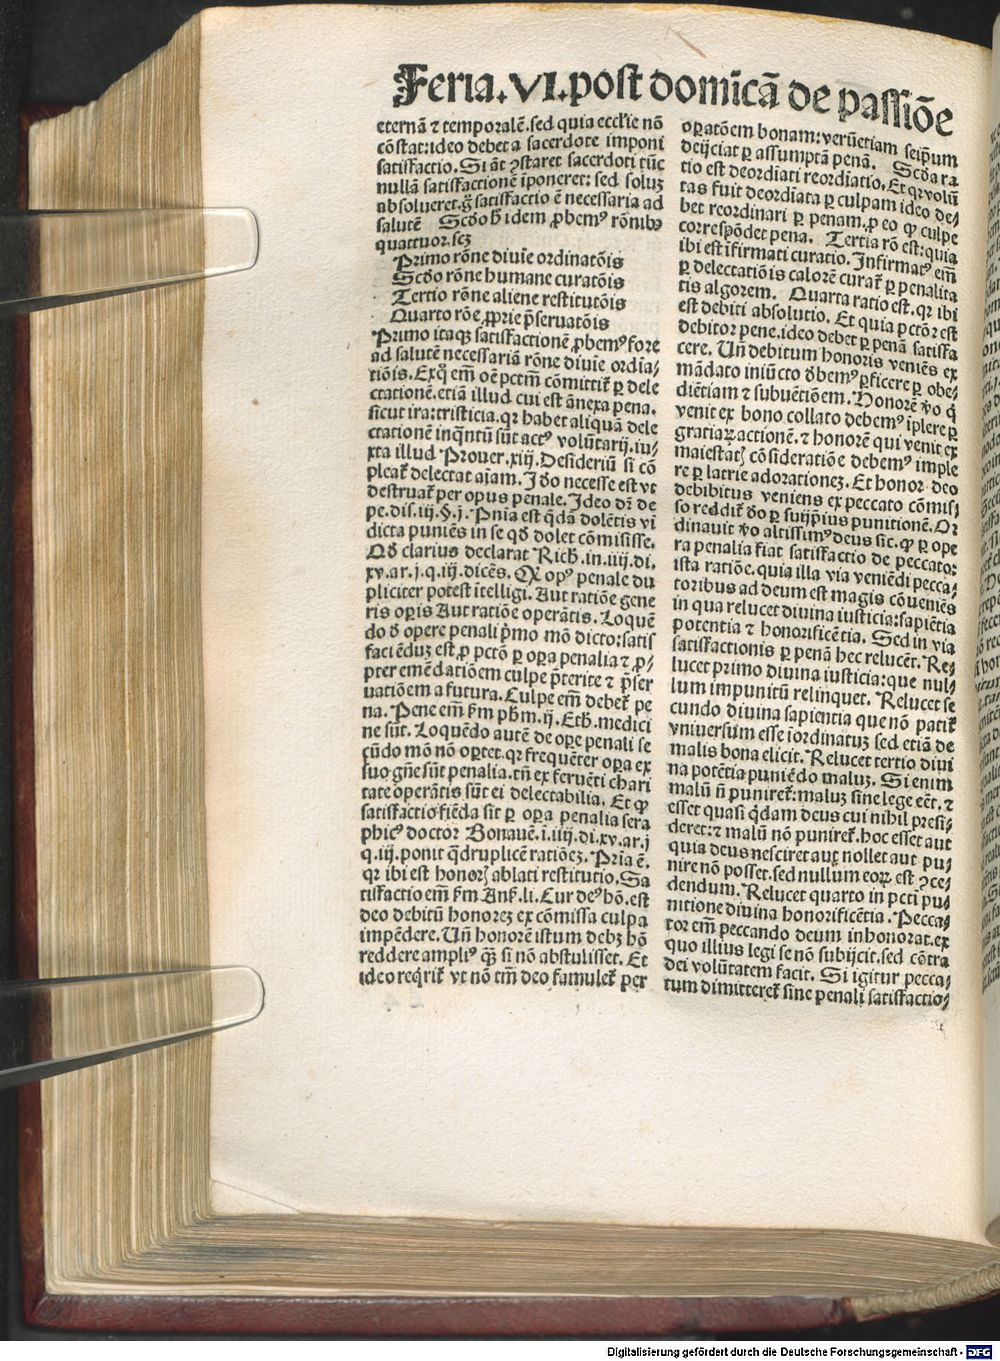 Feria.VI.post domīcā de passiōe
eternā ⁊ temporalē.sed quia eccłie nō
cōstat:ideo debet a sacerdote imponi
satisfactio.Si āt ꝯstaret sacerdoti tūc
nullā satisfactionē īponeret: sed soluȝ
absolueret.g̊ satisfactio ē necessaria ad
salutē Scd̄o h̄ idem ꝓbemꝰ rōnibꝰ
quattuor.sez
Primo rōne diuīe ordinatōis
Scd̄o rōne humane curatōis
Tertio rōne aliene restitutōis
Quarto rōe ꝓprie p̄seruatōis
Primo itaqꝫ satisfactionē ꝓbemꝰ fore
ad salutē necessariā rōne diuīe ordia⸗
tiōis.Exq̊ em̄ oē pctm̄ cōmittit᷑ ꝑ dele
ctationē.etiā illud cui est ānexa pena.
sicut ira:tristicia.qꝛ habet aliquā dele
ctationē inqntū sūt actꝰ volūtarij.iu⸗
xta illud Prouer.xiij.Desideriū si cō
pleat᷑ delectat aīam.Id̄o necesse est vt
destruat᷑ per opus penale.Ideo dr̄ de
pe.dis.iij.§.j. Pnīa est q̄dā dolētis vi
dicta puniēs in se qd̄ dolet cōmisisse.
Qd̄ clarius declarat Rich̄.in.iiij.di.
xv.ar.j.q.iij.dicēs. Qꝫ opꝰ penale du
pliciter potest ītelligi. Aut ratiōe gene
ris opis Aut ratiōe operātis. Loquē
do d̄ opere penali p̄mo mō dicto:satis
faciēduȝ est ꝓ pctō ꝑ oꝑa penalia ⁊ ꝓ⸗
pter emēdatiōem culpe p̄terite ⁊ p̄ser
uatiōem a futura. Culpe em̄ debet᷑ pe
na. Pene em̄ s̄m pħm.ij. Eth̄. medici
ne sūt. Loquēdo autē de oꝑe penali se
cūdo mō nō oꝑtet.qꝛ frequēter oꝑa ex
suo gn̄e sūt penalia.tn̄ ex feruēti chari
tate operātis sūt ei delectabilia. Et ꝙ
satisfactio fiēda sit ꝑ oꝑa penalia sera
phicꝰ doctor Bonauē.ī.iiij.di.xv.ar.j
q.iij.ponit q̄druplicē ratiōeȝ. Pria ē.
qꝛ ibi est honorꝭ ablati restitutio. Sa
tisfactio em̄ s̄m Ans̄.li. Cur deꝰ hō.est
deo debitū honoreȝ ex cōmissa culpa
impēdere. Un̄ honorē istum debȝ hō
reddere ampliꝰ qꝫ si nō abstulisset. Et
ideo reqrit᷑ vt nō tm̄ deo famulet᷑ per
oꝑatōem bonam:verūetiam seip̄um
deijciat ꝑ assumptā penā. Scd̄a ra
tio est deordiati reordiatio. Et qꝛ volū
tas fuit deordiata ꝑ culpam ideo de⸗
bet reordinari ꝑ penam.ꝓ eo ꝙ culpe
correspōdet pena. Tertia rō est:quia
ibi est īfirmati curatio. Infirmatꝰ em̄
ꝑ delectatiōis calorē curat᷑ ꝑ penalita
tis algorem. Quarta ratio est.qꝛ ibi
est debiti absolutio. Et quia pctōr est
debitor pene.ideo debet ꝑ penā satisfa
cere. Un̄ debitum honoris veniēs ex
mādato iniūcto d̄bemꝰ ꝑficere ꝑ obe⸗
diētiam ⁊ subuētiōem. Honorē v̄o q̄
venit ex bono collato debemꝰ īplere ꝑ
gratiaꝝ actionē.⁊ honorē qui venit ex
maiestatꝭ cōsideratiōe debemꝰ imple
re ꝑ latrie adorationeȝ. Et honor deo
debibitus veniens ex peccato cōmis⸗
so reddit᷑ d̄o ꝑ suijp̄ius punitionē. Or
dinauit v̄o altissimꝰ deus sic.ꝙ ꝑ oꝑe
ra penalia fiat satisfactio de peccato:
ista ratiōe.quia illa via veniēdi pecca⸗
toribus ad deum est magis cōueniēs
in qua relucet diuina iusticia:sapiētia
potentia ⁊ honorificētia. Sed in via
satisfactionis ꝑ penā hec relucēt. Re⸗
lucet primo diuina iusticia:que nul⸗
lum impunitū relinquet. Relucet se
cundo diuina sapientia que nō patit᷑
vniuersum esse īordinatuȝ sed etiā de
malis bona elicit. Relucet tertio diui
na potētia puniēdo maluȝ. Si enim
malū n̄ puniret᷑:maluȝ sine lege eēt.⁊
esset quasi q̄dam deus cui nihil presi⸗
deret:⁊ malū nō puniret᷑.hoc esset aut
quia deus nesciret aut nollet aut pu⸗
nire nō posset.sed nullum eoꝝ est ꝯce⸗
dendum. Relucet quarto in pcti pu⸗
nitione diuina honorificētia. Pecca⸗
tor em̄ peccando deum inhonorat.ex
quo illius legi se nō subijcit.sed cōtra
dei volūtatem facit. Si igitur pecca⸗
tum dimitteret᷑ sine penali satisfactio⸗
Digitalisierung gefördert durch die Deutsche Forschungsgemeinschaft - DFG